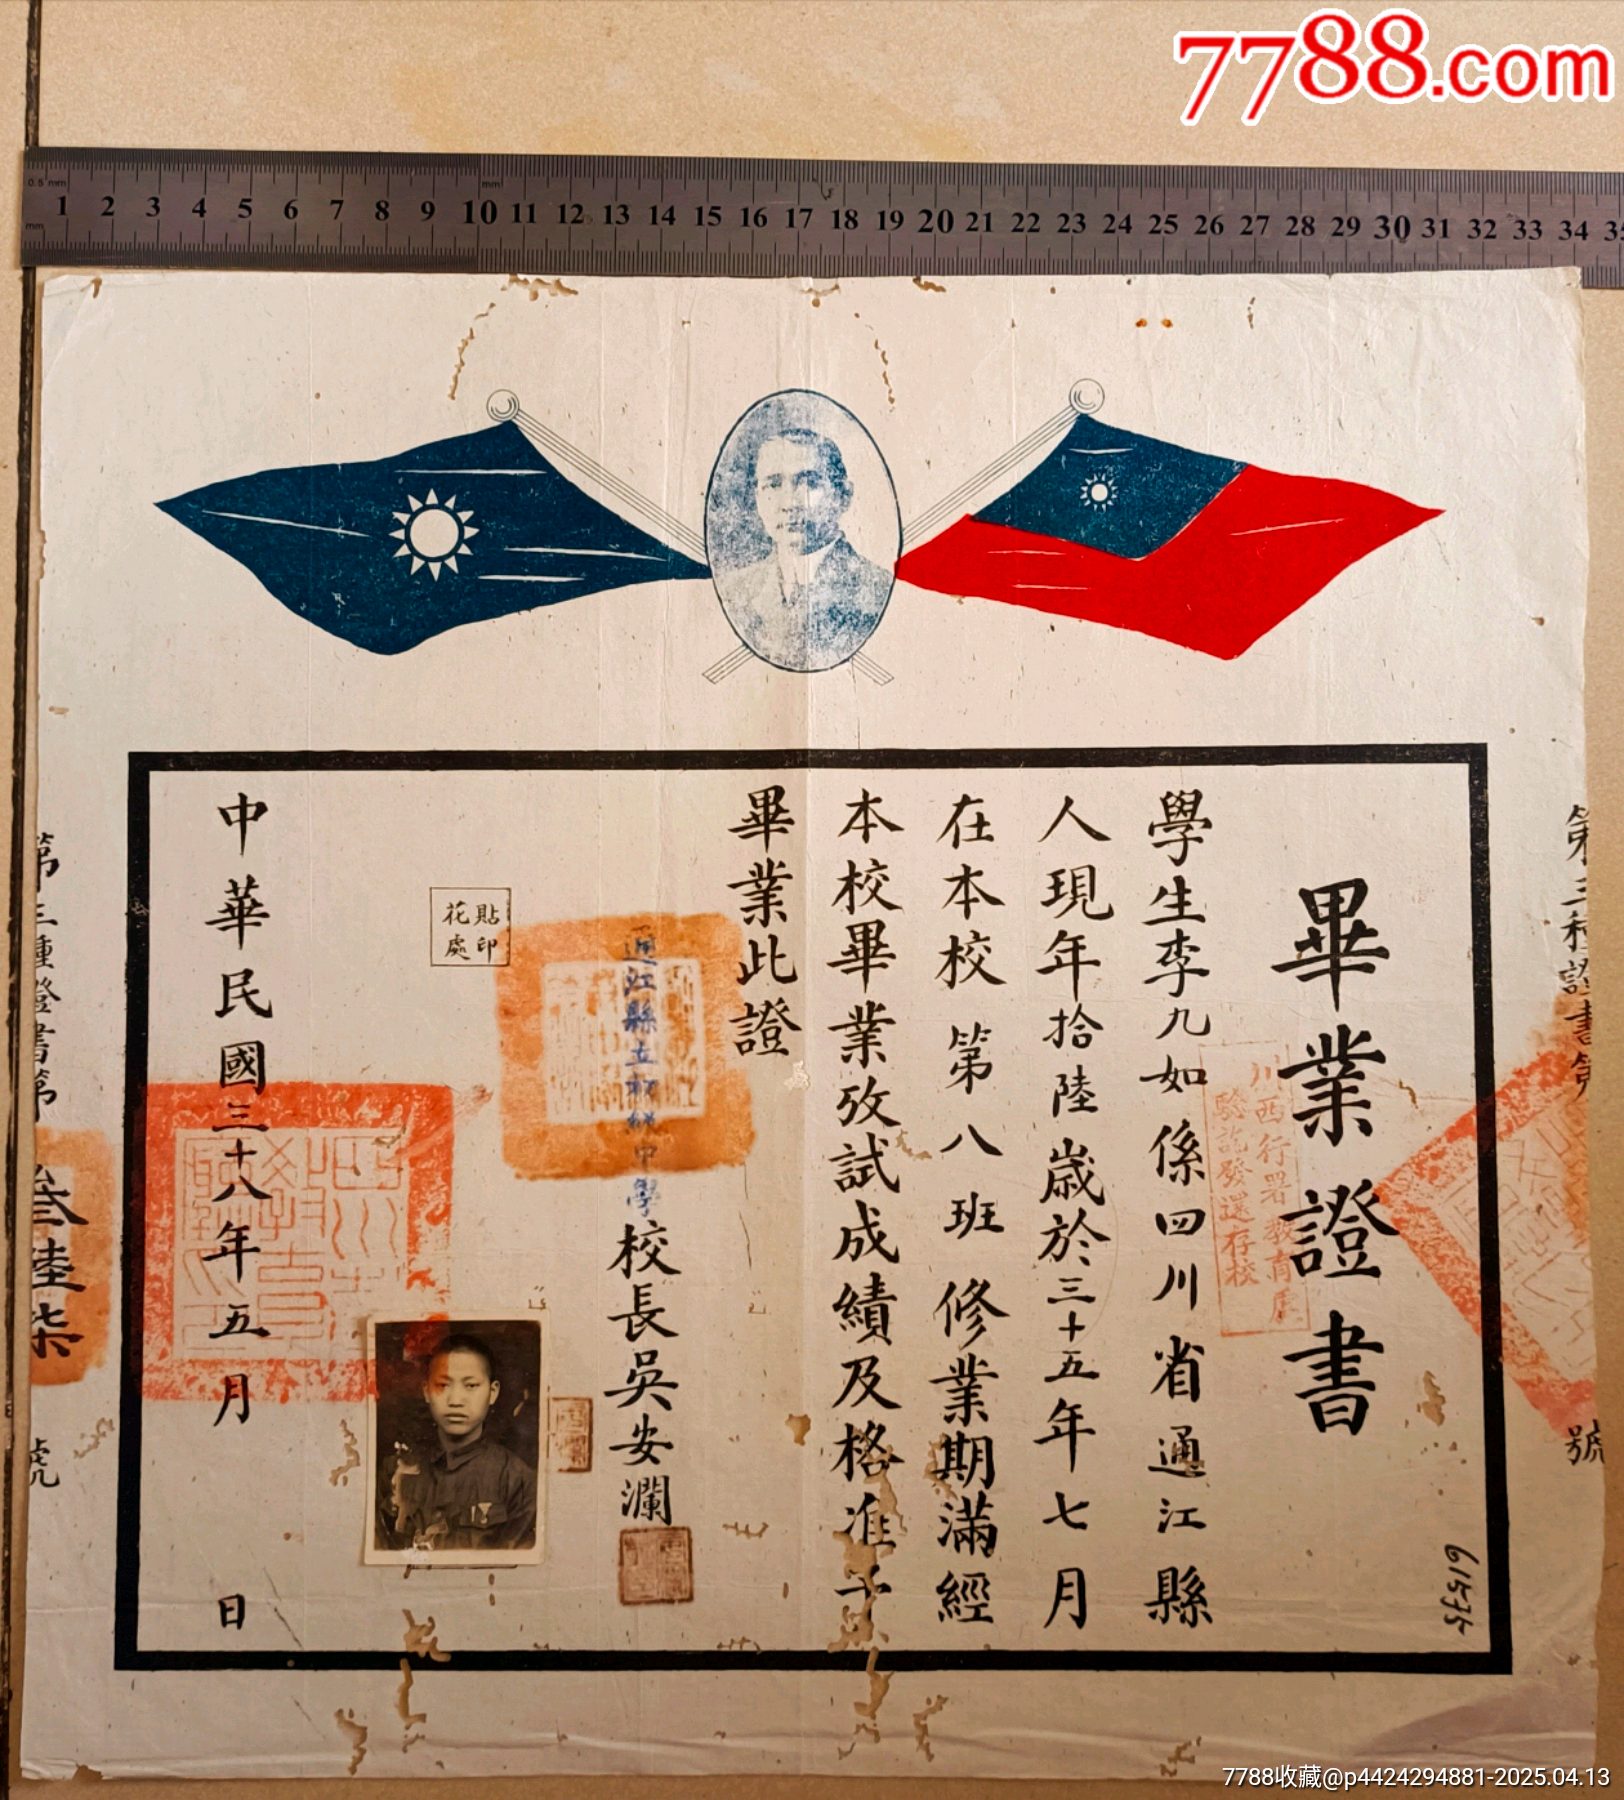 7788.com
0.5 mm
mm
mm
1 2 3 4 5 6 7 8 9 10 11 12 13 14 15 16 17 18 19 20 21 22 23 24 25 26 27 28 29 30 31 32 33 34 35
第三種證書第
號
畢業證書
61575
川西行署教育廳
驗訖發還存校
學生李九如係四川省通江縣
人現年拾陸歲於三十五年七月
在本校第八班修業期滿經
本校畢業攷試成績及格准予
畢業此證
通江縣立初級中學
校長吳安瀾
貼印
花處
中華民國三十八年五月 日
第三種證書第
叁陸柒
號
7788收藏@p4424294881-2025.04.13